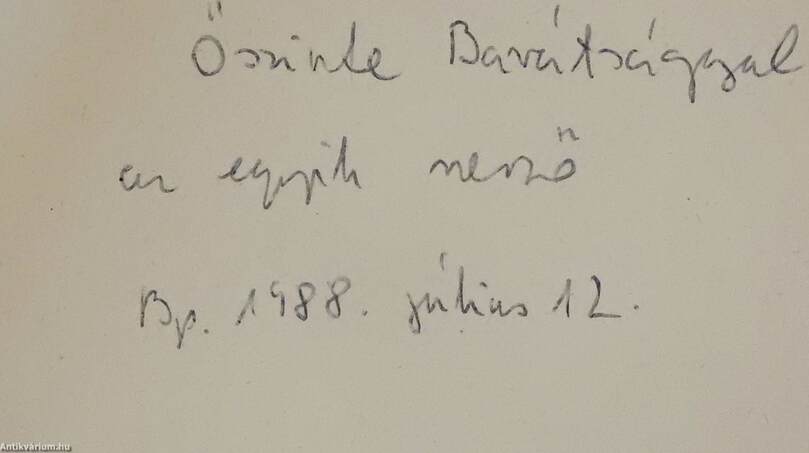 Őszinte Barátsággal
az egyik szerző
Bp. 1988. július 12.
Antikvárium.hu